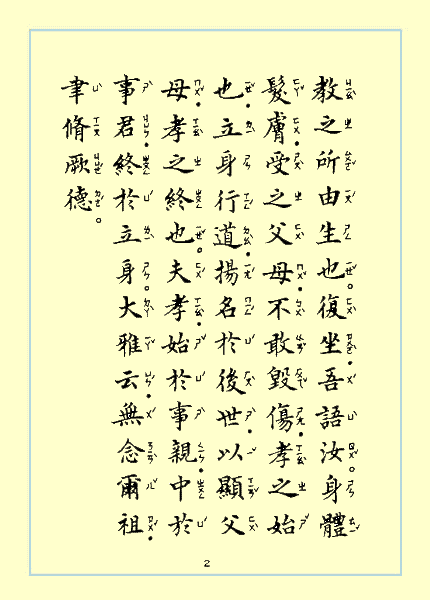 教之所由生也。復坐．吾語汝。身體
髮膚．受之父母．不敢毀傷．孝之始
也．立身行道．揚名於後世．以顯父
母．孝之終也。夫孝．始於事親．中於
事君．終於立身。大雅云．無念爾祖．
聿脩厥德。
2